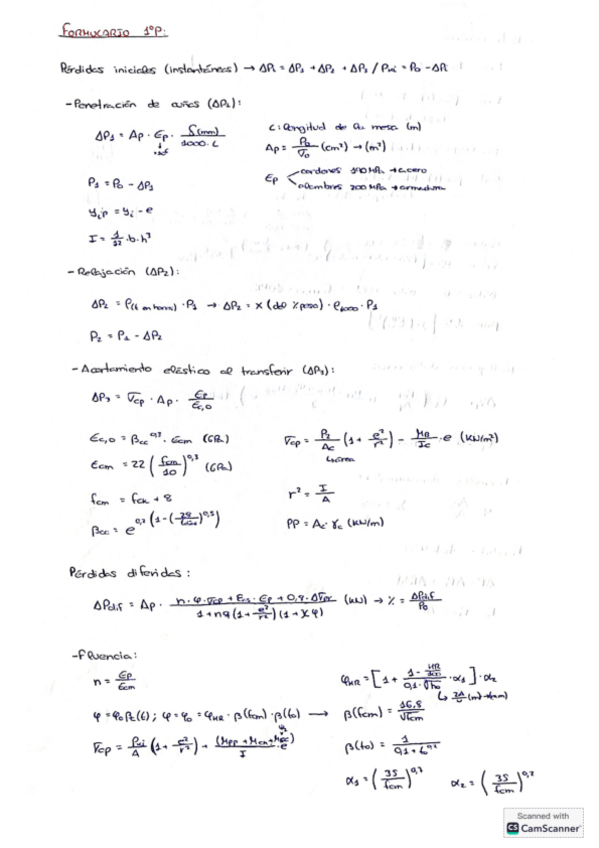 FORMULARIO 1ºP:
Pérdidas iniciales (instantáneas) → ΔPi = ΔP1 + ΔP2 + ΔP3 / Pki = P0 - ΔPi
- Penetración de cuñas (ΔP1):
ΔP1 = Ap · Ep · δ(mm) / 1000·L
L: longitud de la mesa (m)
Ap = P0 / σ0 (cm²) → (m²)
Ep
cordones 190 MPa → acero
alambres 200 MPa → armadura
P1 = P0 - ΔP1
yip = yi - e
I = 1/12 · b · h³
- Relajación (ΔP2):
ΔP2 = ρ(t en horas) · P1 → ΔP2 = x (del % peso) · ρ1000 · P1
P2 = P1 - ΔP2
- Acortamiento elástico al transferir (ΔP3):
ΔP3 = σcp · Ap · Ep / Ec,0
Ec,0 = βcc^0,3 · Ecm (GPa)
σcp = P2/Ac (1 + e²/r²) - M0/Ic · e (kN/m²)
área
Ecm = 22 (fcm/10)^0,3 (GPa)
fcm = fck + 8
r² = I/A
PP = Ac · γc (kN/m)
Pérdidas diferidas:
ΔPdif = Ap · n·φ·σcp + Ecs·Ep + 0,8·Δσpr / 1 + nρ(1 + e²/r²)(1 + χφ) (kN) → % = ΔPdif / P0
- Fluencia:
n = Ep / Ecm
φHR = [1 + 1 - HR/100 / 0,1·∛h0 · α1] · α2
φ = φ0 βc(t) ; φ = φ0 = φHR · β(fcm) · β(t0) → β(fcm) = 16,8 / √fcm
β(t0) = 1 / 0,1 + t^0,2
α1 = (35/fcm)^0,7
α2 = (35/fcm)^0,2
Scanned with
CS CamScanner